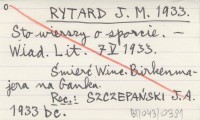 RYTARD J. M. 1933.
Sto wierszy o sporcie. —
Wiad. Lit. 7 V 1933.
Śmierć Winc. Birkenma-
jera na Ganku.
Rec.: SZCZEPAŃSKI J. A.
1933 bc.